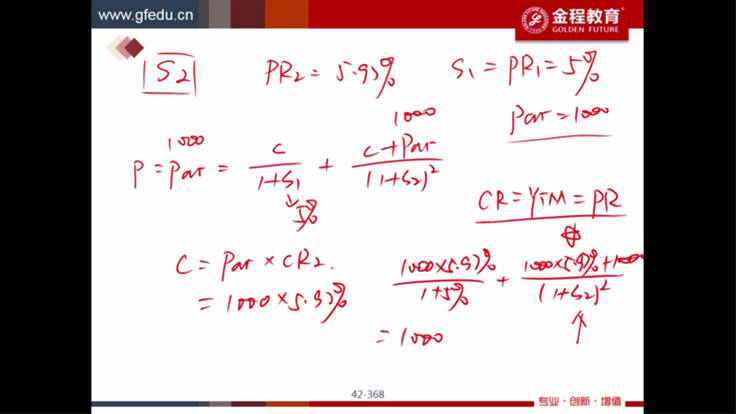 www.gfedu.cn
金程教育
GOLDEN FUTURE
S2 PR2 = 5.97% S1 = PR1 = 5%
Par = 1000
1000 1000
P = Par = C/(1+S1) + (C+Par)/(1+S2)²
5%
CR = YTM = PR
C = Par × CR2.
= 1000 × 5.97%
(1000×5.97%)/(1+5%) + (1000×5.97%+1000)/(1+S2)²
= 1000
42-368
专业·创新·增值